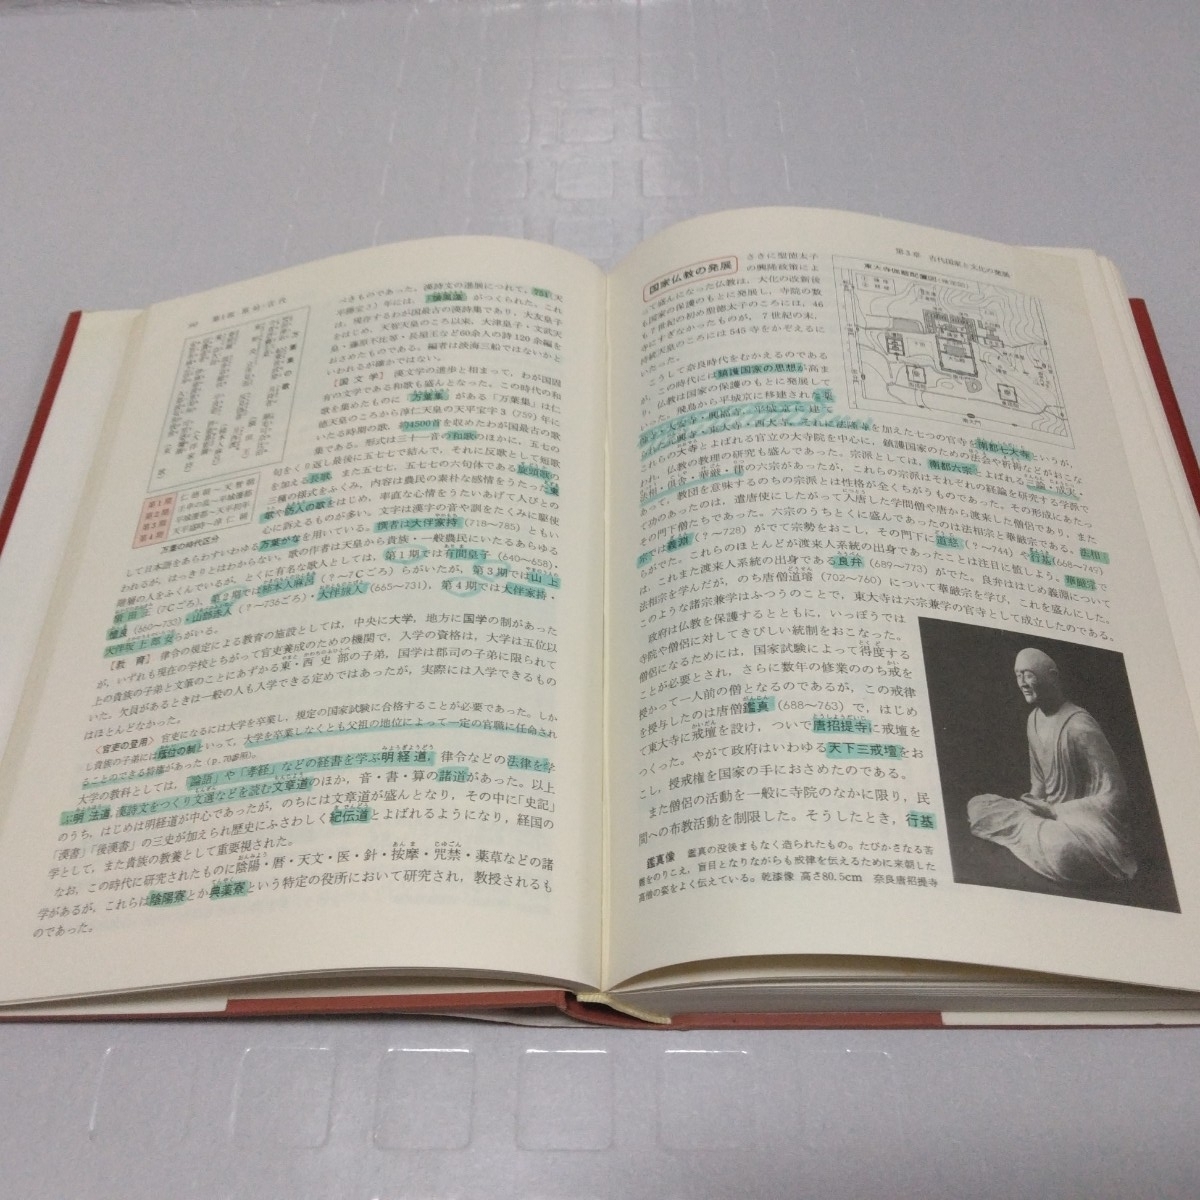 第1部 原始・古代
べきものであった。漢詩文の進展につれて、751(天
平勝宝3)年には、「懐風藻」がつくられた。これ
は、現存するわが国最古の漢詩集であり、大友皇子
をはじめ、天智天皇のころ以来、大津皇子・文武天
皇・藤原不比等・長屋王など60余人の詩120余編を
おさめたものである。編者は淡海三船ではないかと
いわれるが確かではない。
【国文学】 漢文学の進歩と相まって、わが国固
有の文学である和歌も盛んとなった。この時代の和
歌を集めたものに「万葉集」がある「万葉集」は仁
徳天皇のころから淳仁天皇の天平宝字3(759)年に
いたる時期の歌、約4500首を収めたわが国最古の歌
集である。形式は三十一音の和歌のほかに、五七の
句をくり返し最後に五七七で結んで、それに反歌として短歌
を加える長歌、また五七七、五七七の六句体である旋頭歌の
三種の様式をふくみ、内容は農民の素朴な感情をうたった東
歌や防人の歌をはじめ、率直な心情をうたいあげて人びとの
心に訴えるものが多い。文字は漢字の音や訓をたくみに駆使
して日本語をあらわすいわゆる万葉がなを用いている。撰者は大伴家持(718〜785)ともい
われるが、はっきりとはわからない。歌の作者は天皇から貴族・一般農民にいたるあらゆる
階層の人をふくんでいるが、とくに有名な歌人としては、第1期では有間皇子(640〜658)・
額田王(7Cごろ)、第2期では柿本人麻呂(?〜7Cごろ)らがいたが、第3期では山上
憶良(660〜733)・山部赤人(?〜736ごろ)・大伴旅人(665〜731)、第4期では大伴家持・
大伴坂上郎女らがいる。
万葉集の歌
第1期
第2期
第3期
第4期
万葉の時代区分
【教 育】 律令の規定による教育の施設としては、中央に大学、地方に国学の制があった
が、いずれも現在の学校とちがって官吏養成のための機関で、入学の資格は、大学は五位以
上の貴族の子弟と文筆のことにあずかる東・西史部の子弟、国学は郡司の子弟に限られて
いた。欠員があるときは一般の人も入学できる定めではあったが、実際には入学できるもの
はほとんどなかった。
〈官吏の登用〉 官吏になるには大学を卒業し、規定の国家試験に合格することが必要であった。しか
し貴族の子弟には蔭位の制といって、大学を卒業しなくとも父祖の地位によって一定の官職に任命され
ることのできる特権があった(p.70参照)。
大学の教科としては、「論語」や「孝経」などの経書を学ぶ明経道、律令などの法律を学
ぶ明法道、漢詩文をつくり文選などを読む文章道のほか、音・書・算の諸道があった。以上
のうち、はじめは明経道が中心であったが、のちには文章道が盛んとなり、その中に「史記」
「漢書」「後漢書」の三史が加えられ歴史にふさわしく紀伝道とよばれるようになり、経国の
学として、また貴族の教養として重要視された。
なお、この時代に研究されたものに陰陽・暦・天文・医・針・按摩・咒禁・薬草などの諸
学があるが、これらは陰陽寮とか典薬寮という特定の役所において研究され、教授されるも
のであった。
第3章 古代国家と文化の発展
国家仏教の発展
さきに聖徳太子
の興隆政策によ
って盛んになった仏教は、大化の改新後
も国家の保護のもとに発展し、寺院の数
も7世紀の初め聖徳太子のころには、46
寺にすぎなかったものが、7世紀の末、
持統天皇のころには545寺をかぞえるに
いたった。
こうして奈良時代をむかえるのである
が、この時代には鎮護国家の思想が高ま
り、仏教は国家の保護のもとに発展して
いった。飛鳥から平城京に移建された薬
師寺・大安寺・興福寺、平城京に建て
られた元興寺・東大寺・西大寺、それに法隆寺を加えた七つの官寺を南都七大寺というが、
これらの大寺とよばれる官立の大寺院を中心に、鎮護国家のための法会や祈祷などがおこな
われ、仏教の教理の研究も盛んであった。宗派としては、南都六宗とよばれる三論・成実・
法相・倶舎・華厳・律の六宗があったが、これらの宗派はそれぞれの経論を研究する学派で
あって、教団を意味するのちの宗派とは性格が全くちがうものであった。その形成にあたっ
て功のあったのは、遣唐使にしたがって入唐した学問僧や唐から渡来した僧侶であり、また
その門下僧たちであった。六宗のうちとくに盛んであったのは法相宗と華厳宗である。法相
宗では義淵(?〜728)がでて宗勢をおこし、その門下に道慈(?〜744)や行基(668〜749)
らがでた。これらのほとんどが渡来人系統の出身であったことは注目に値しよう。華厳宗で
は、これまた渡来人系統の出身である良弁(689〜773)がでた。良弁ははじめ義淵について
法相宗を学んだが、のち唐僧道璿(702〜760)について華厳宗を学び、これを盛んにした。
このような諸宗兼学はふつうのことで、東大寺は六宗兼学の官寺として成立したのである。
政府は仏教を保護するとともに、いっぽうでは
寺院や僧侶に対してきびしい統制をおこなった。
僧侶になるためには、国家試験によって得度する
ことが必要とされ、さらに数年の修業ののち戒を
授かって一人前の僧となるのであるが、この戒律
を授与したのは唐僧鑑真(688〜763)で、はじめ
て東大寺に戒壇を設け、ついで唐招提寺に戒壇を
つくった。やがて政府はいわゆる天下三戒壇をお
こし、授戒権を国家の手におさめたのである。
また僧侶の活動を一般に寺院のなかに限り、民
間への布教活動を制限した。そうしたとき、行基
鑑真像 鑑真の没後まもなく造られたもの。たびかさなる苦
難をのりこえ、盲目となりながらも戒律を伝えるために来朝した
高僧の姿をよく伝えている。乾漆像 高さ80.5cm 奈良唐招提寺
東大寺伽藍配置図